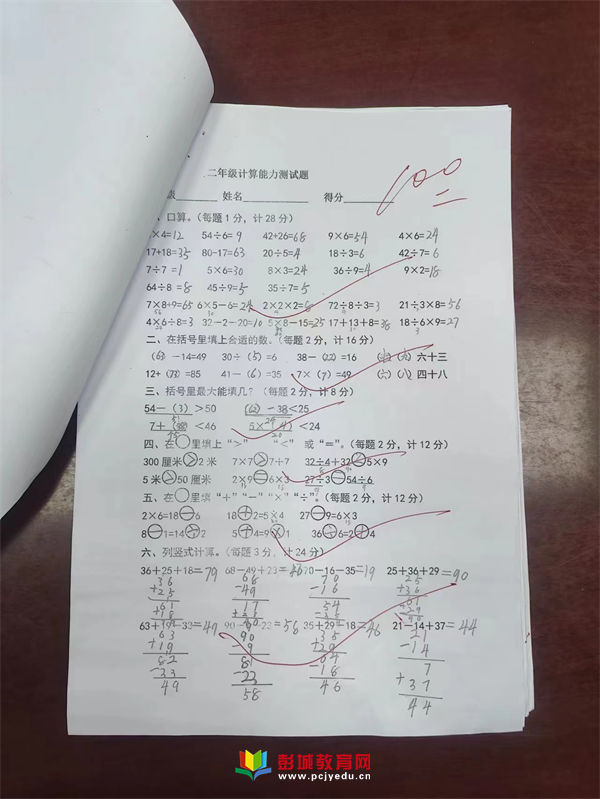 二年级计算能力测试题
级 姓名 得分
100
、口算。(每题1分，计28分)
×4=12 54÷6=9 42+26=68 9×6=54 4×6=24
17+18=35 80-17=63 20÷5=4 18÷3=6 42÷7=6
7÷7=1 5×6=30 8×3=24 36÷9=4 9×2=18
64÷8=8 45÷9=5 35÷7=5
7×8+9=65 6×5-6=24 2×2×2=8 72÷8÷3=3 21÷3×8=56
4×6÷8=3 32-2-20=10 5×8-15=25 17+13+8=38 18÷6×9=27
二、在括号里填上合适的数。(每题2分，计16分)
(63)-14=49 30÷(5)=6 38-(22)=16 (七)(九)六十三
12+(73)=85 41-(6)=35 7×(7)=49 (六)(八)四十八
三、括号里最大能填几？(每题2分，计8分)
54-(3)>50 (62)-38<25
7+(38)<46 5×(4)<24
四、在○里填上“>” “<” 或“=”。(每题2分，计12分)
300厘米>2米 7×7>7÷7 32÷4+32 5×9
5米>50厘米 2×9 6×3 27÷3 54÷6
五、在○里填“+”“-”“×”“÷”。(每题2分，计12分)
2×6=18-6 18+2=5×4 27-9=6×3
8-1=14÷2 5+4=9×1 36-6=2+4
六、列竖式计算。(每题3分，计24分)
36+25+18=79 68-49+23= 70-16-35=19 25+36+29=90
63+19-33=49 90 23=56 35+29-18=46 21-14+37=44
彭城教育网
www.pcjyedu.cn